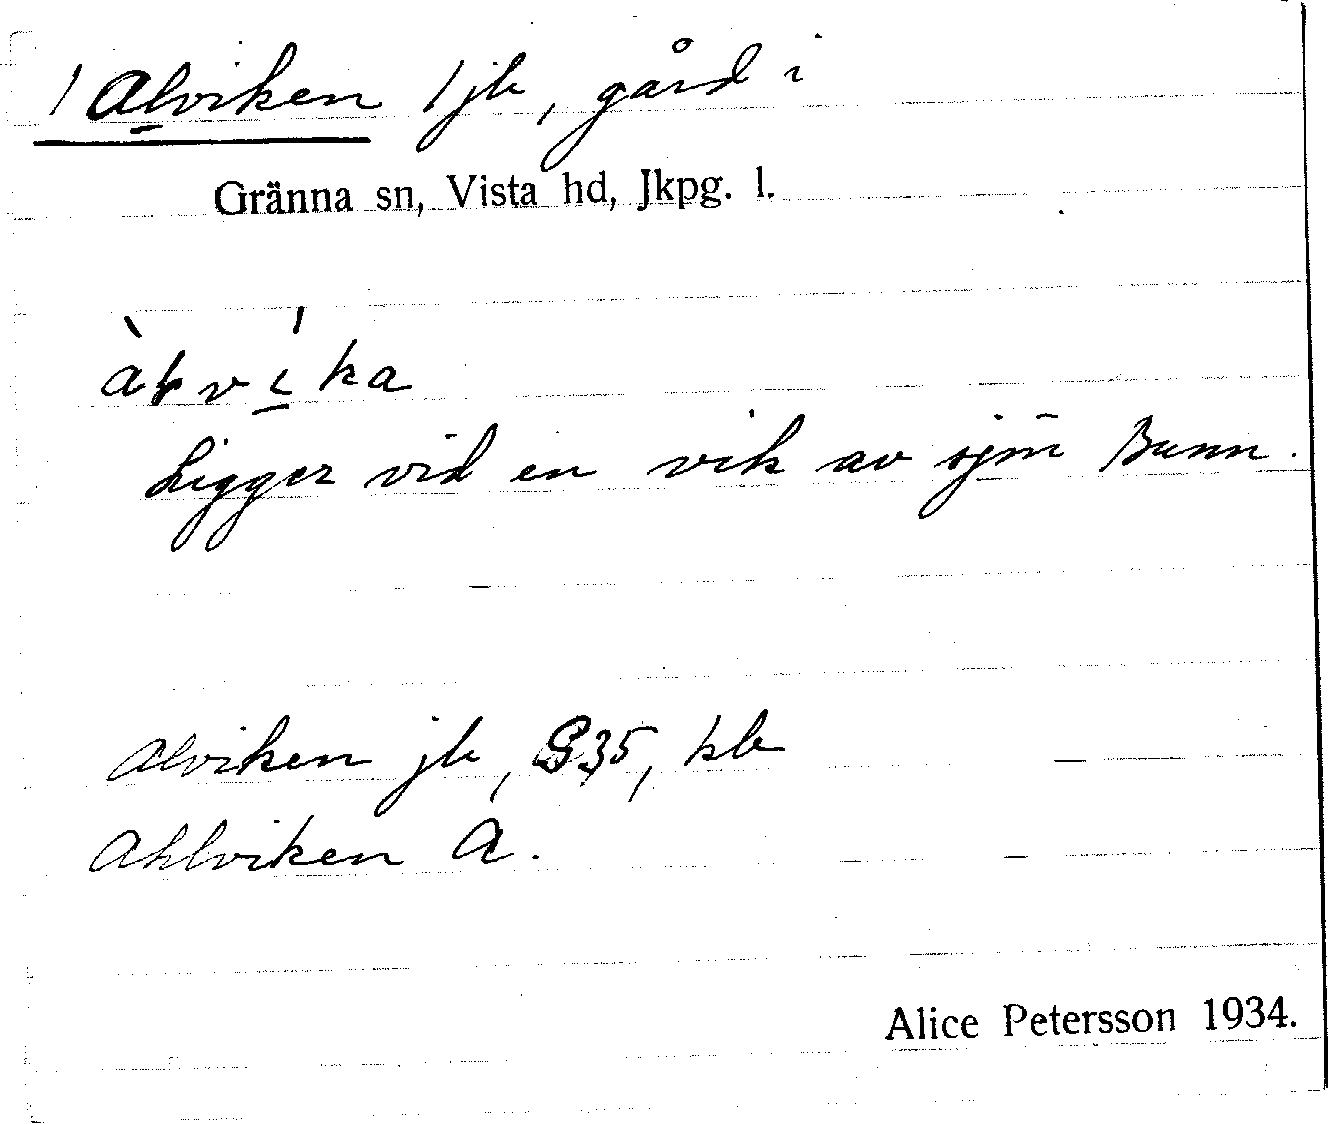 1 Alviken 1 jb, gård i
Gränna sn, Vista hd, Jkpg. l.
Ligger vid en vik av sjön Bunn.
Alviken jb, G35, kb
Ahlviken A.
Alice Petersson 1934.